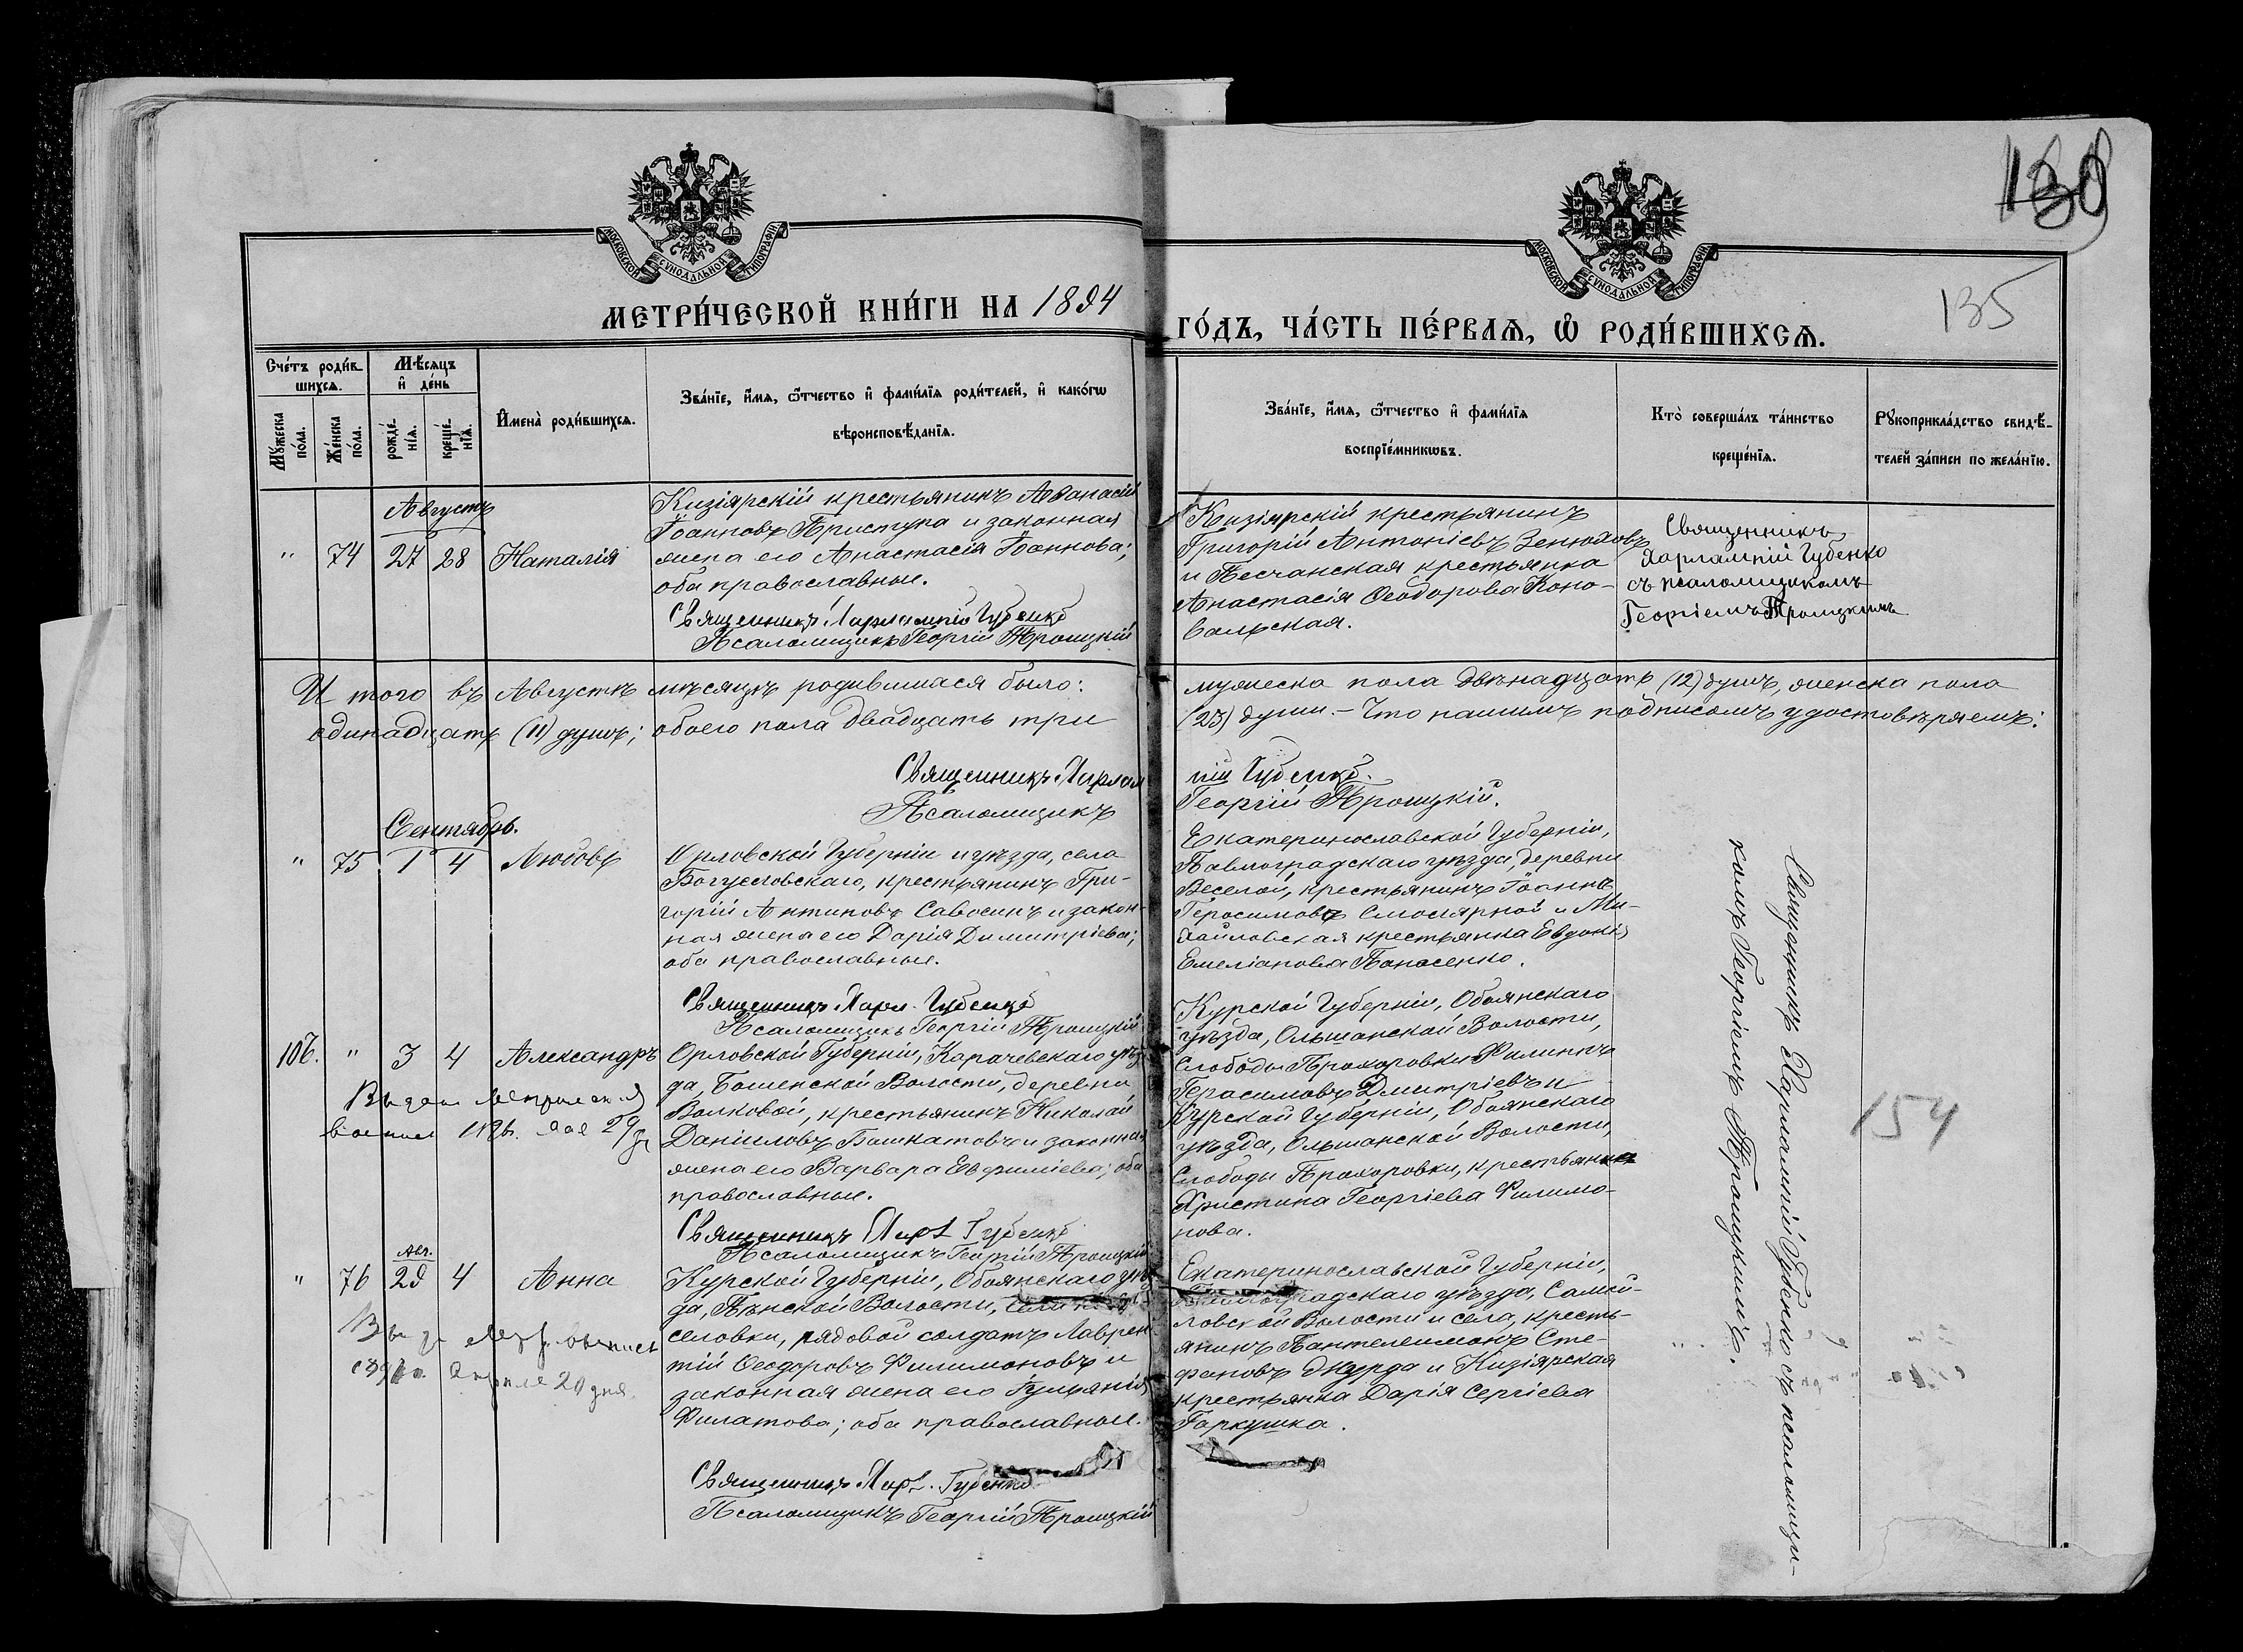 130
135
МОСКОВСКОЙ СѴНОДАЛЬНОЙ ТИПОГРАФІИ
МОСКОВСКОЙ СѴНОДАЛЬНОЙ ТИПОГРАФІИ
МЕТРИ́ЧЕСКОЙ КНИ́ГИ НА 1894
ГО́ДЪ, ЧА́СТЬ ПЕ́РВАѦ, Ѡ҆ РОДИ́ВШИХСѦ.
Сче́тъ роди́в-
шихсѧ.
Мꙋ́жеска по́ла.
Же́нска по́ла.
Мѣ́сѧцъ
и҆ де́нь
рожде́-
нїѧ.
креще́-
нїѧ.
И҆мена̀ роди́вшихсѧ.
Зва́нїе, и҆́мѧ, ѻ҆́тчество и҆ фами́лїѧ роди́телей, и҆ како́гѡ
вѣроисповѣ́данїѧ.
Зва́нїе, и҆́мѧ, ѻ҆́тчество и҆ фами́лїѧ
воспрїе́мникѡвъ.
Кто̀ соверша́лъ та́инство
креще́нїѧ.
Рꙋкоприкла́дство свидѣ́-
телей за́писи по жела́нїю.
Августъ
" 74 27 28 Наталія
Кизіярскій крестьянинъ Аѳанасій
Іоанновъ Приступа и законная
жена его Анастасія Іоаннова;
оба православные.
Священникъ Харлампій Губенко
Псаломщикъ Георгій Троицкій
Кизіярскій крестьянинъ
Григорій Антоніевъ Зенюховъ
и Песчанская крестьянка
Анастасія Ѳеодорова Коно-
вальская.
Священникъ
Харлампій Губенко
съ псаломщикомъ
Георгіемъ Троицкимъ
И того въ Августѣ мѣсяцѣ родившихся было: мужеска пола двѣнадцать (12) душъ, женска пола
одинадцать (11) душъ; обоего пола двадцать три (23) души. – Что нашимъ подписомъ удостовѣряемъ:
Священникъ Харлампій Губенко.
Псаломщикъ Георгій Троицкій.
Сентябрь.
" 75 1 4 Любовь
Орловской Губерніи и уѣзда, села
Богусловскаго, крестьянинъ Гри-
горій Антиповъ Савосинъ и закон-
ная жена его Дарія Димитріева;
оба православные.
Священникъ Харл. Губенко
Псаломщикъ Георгій Троицкій
Екатеринославской Губерніи,
Павлоградскаго уѣзда, деревни
Веселой, крестьянинъ Іоаннъ
Герасимовъ Смолярной и Ми-
хайловская крестьянка Евдокія
Емеліанова Панасенко.
106. " 3 4 Александръ
29
Орловской Губерніи, Карачевскаго уѣз-
да, Бошенской Волости, деревни
Волковой, крестьянинъ Николай
Даніиловъ Башкатовъ и законная
жена его Варвара Евѳиміева; оба
православные.
Священникъ Харл. Губенко
Псаломщикъ Георгій Троицкій
Курской Губерніи, Обоянскаго
уѣзда, Ольшанской Волости,
Слободы Прохоровки Филиппъ
Герасимовъ Дмитріевъ и
Курской Губерніи, Обоянскаго
уѣзда, Ольшанской Волости,
Слободы Прохоровки, крестьянка
Христина Георгіева Филимо-
нова.
154
Авг.
" 76 29 4 Анна
Апреля 20 дня
Курской Губерніи, Обоянскаго уѣз-
да, Пѣнской Волости,
селовки, рядовой солдатъ Лаврен-
тій Ѳеодоровъ Филимоновъ и
законная жена его Гуліянія
Филатова; оба православные.
Священникъ Харл. Губенко
Псаломщикъ Георгій Троицкій
Екатеринославской Губерніи,
Павлоградскаго уѣзда, Самой-
ловской Волости и села, кресть-
янинъ Пантелеимонъ Сте-
фановъ Джурда и Кизіярская
крестьянка Дарія Сергіева
Гаркушка.
Священникъ Харлампій Губенко съ псаломщи-
комъ Георгіемъ Троицкимъ.